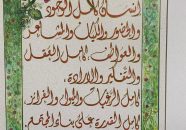 إنسان كامل الوجود
والحضور والكيان والمشاعر
والعزائم، كامل العقل
والتفكير والإرادة.
كامل الرغبات والميول والغرائز.
كامل القدرة على بناء المجتمع